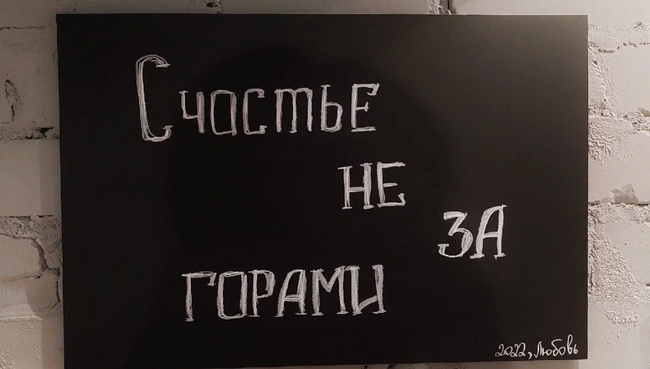 Счастье
не
за
горами
2022, Любовь